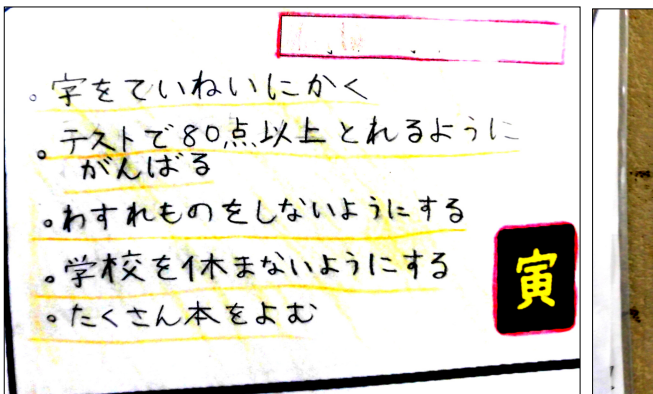 。字をていねいにかく
。テストで80点以上とれるように
がんばる
。わすれものをしないようにする
。学校を休まないようにする
。たくさん本をよむ
寅